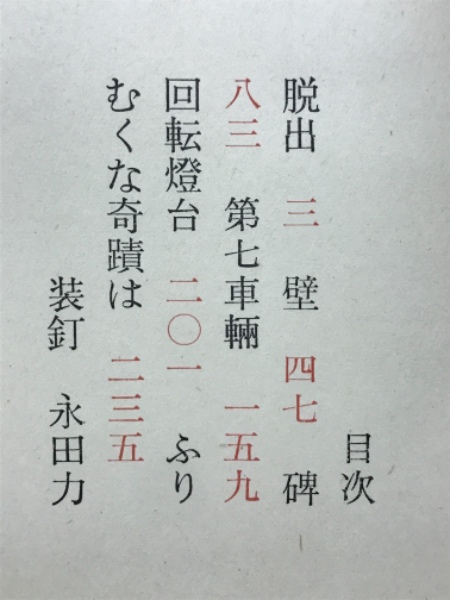 目次
脱出 三 壁 四七 碑
八三 第七車輛 一五九
回転燈台 二〇一 ふり
むくな奇蹟は 二三五
装釘 永田力